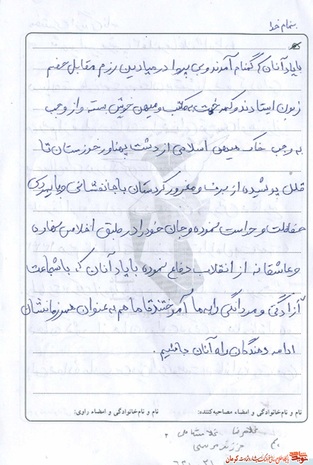 بنام خدا
با یاد آنان که گمنام آمدند و بی پروا در میادین رزم مقابل خصم
زبون ایستادند و کمر همت به مکتب و میهن خویش بسته و از وجب
به وجب خاک میهن اسلامی از دشت پهناور خوزستان تا
قلل پوشیده از برف و مغرور کردستان با جانفشانی و پایمردی
حفاظت و حراست نموده و جان خود را در طبق اخلاص نهاده
و عاشقانه از انقلاب دفاع نموده با یاد آنان که با شهامت
آزادگی و مردانگی را به ما آموختند تا ما هم به عنوان همرزمانشان
ادامه دهندگان راه آنان باشیم.
نام و نام خانوادگی و امضاء مصاحبه کننده:
نام و نام خانوادگی و امضاء راوی: